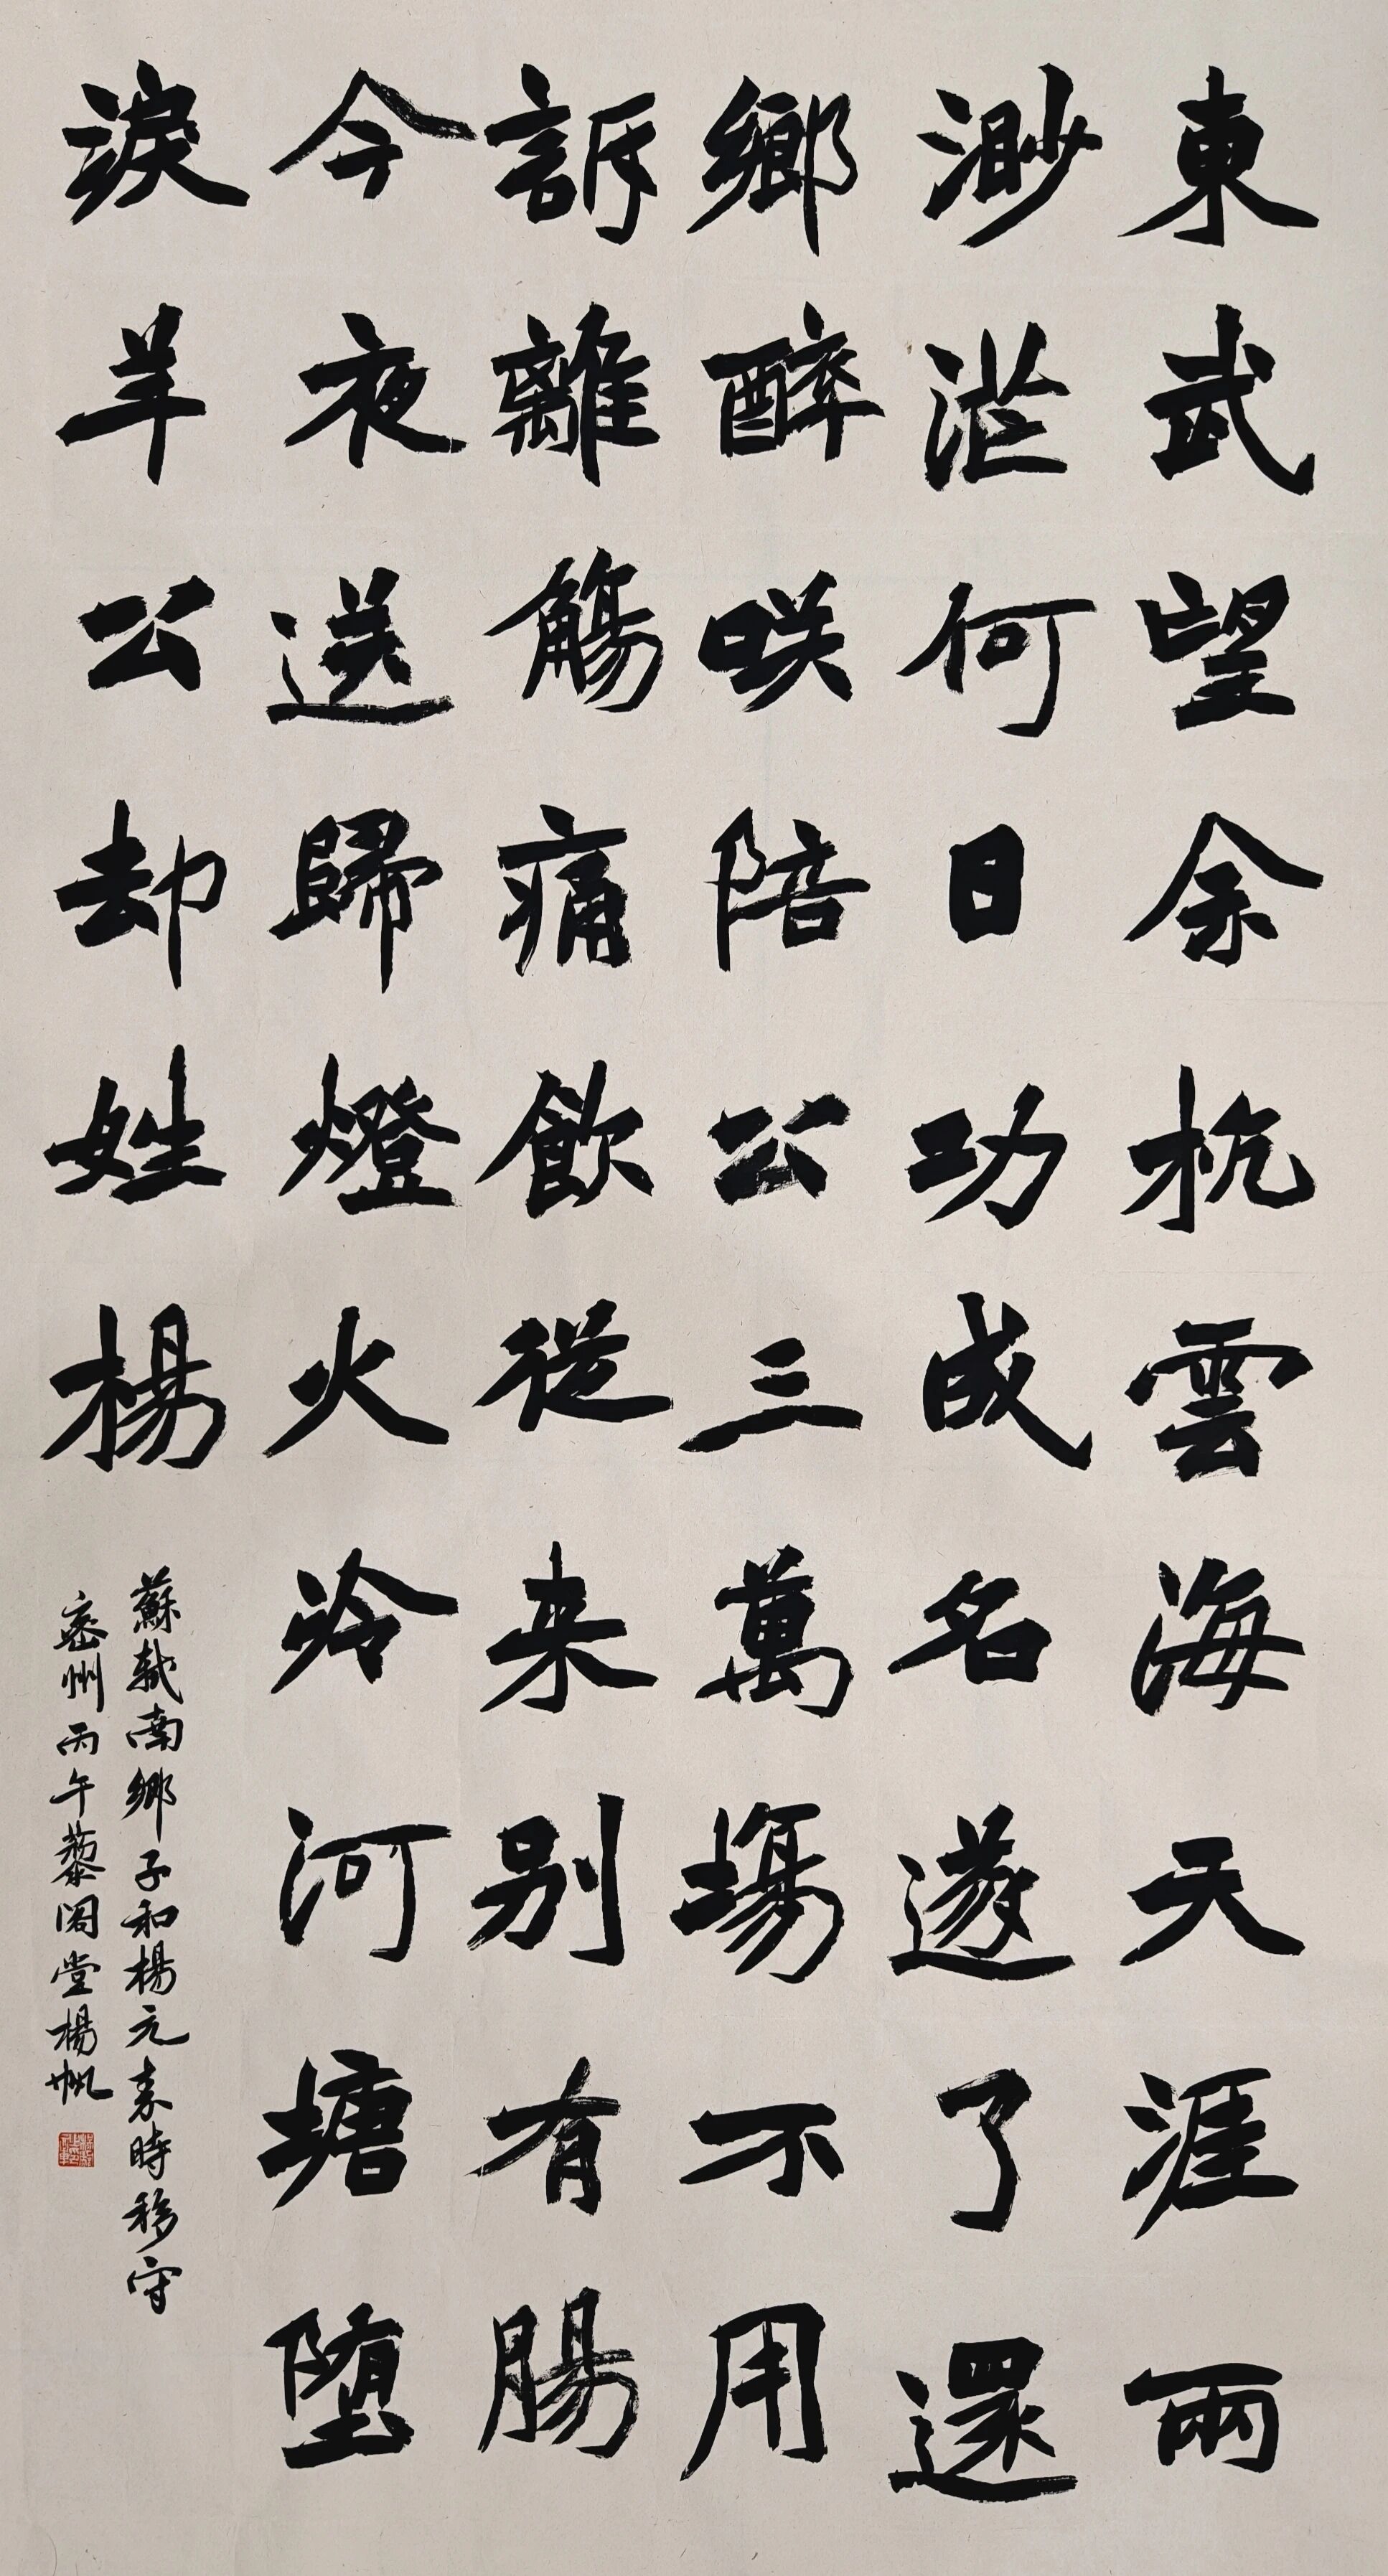 東武望余杭雲海天涯兩
渺茫何日功成名遂了還
鄉醉咲陪公三萬場不用
訴離觴痛飲從来别有腸
今夜送歸燈火冷河塘墮
淚羊公却姓楊
蘇軾南鄉子和楊元素時移守
密州丙午藜閣堂楊帆